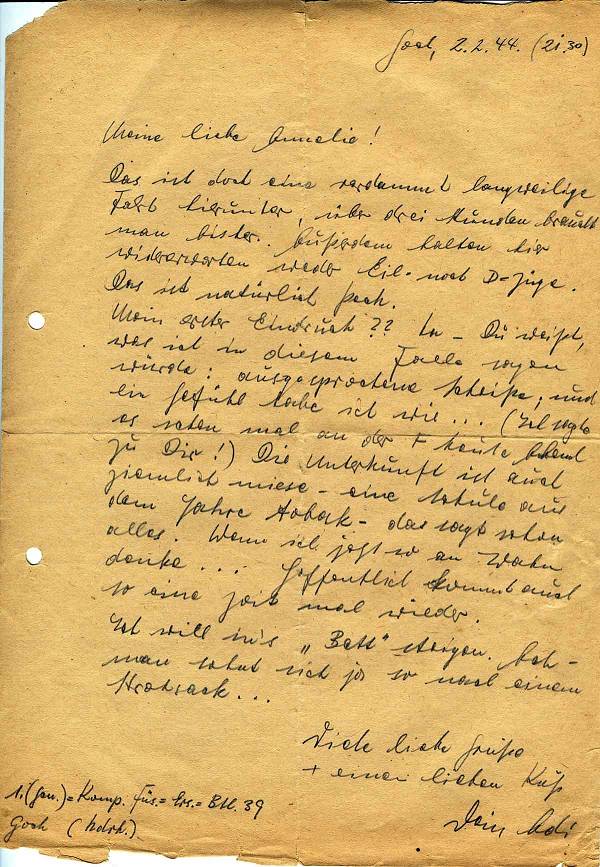 Goch, 2.2.44. (21.30)
Meine liebe Annelie!
Das ist doch eine verdammt langweilige
Fahrt hierunter, über drei Stunden braucht
man bisher. Außerdem halten hier
widererwarten weder Eil- noch D-Züge.
Das ist natürlich Pech.
Mein erster Eindruck?? Na - Du weißt,
was ich in diesem Falle sagen
würde: ausgesprochene Scheiße, und
ein Gefühl habe ich wie... (Ich sagte
es schon mal an der F heute Abend
zu Dir!) Die Unterkunft ist auch
ziemlich miese - eine Schule aus
dem Jahre Tobak - das sagt schon
alles. Wenn ich jetzt so an Wahn
denke... Hoffentlich kommt auch
so eine Zeit mal wieder.
Ich will in's "Bett" steigen. Ach -
man sehnt sich ja so nach einem
Strohsack...
Viele liebe Grüße
+ einen lieben Kuß
Dein Adi
1.(Gen.)=Komp. Füs.=Ers.=Btl. 39
Goch (Ndrh.)